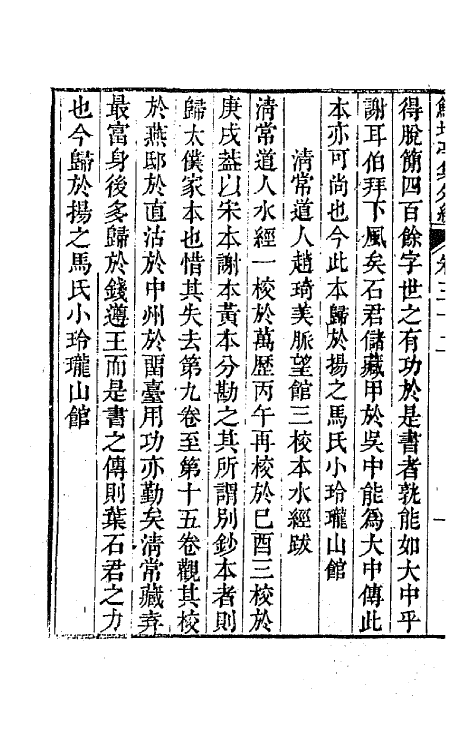 得脫簡四百餘字世之有功於是書者孰能如大中乎
謝耳伯拜下風矣石君儲藏甲於吳中能為大中傳此
本亦可尚也今此本歸於揚之馬氏小玲瓏山館
清常道人趙琦美脈望館三校本水經跋
清常道人水經一校於萬歷丙午再校於己酉三校於
庚戌葢以宋本謝本黃本分勘之其所謂別鈔本者則
歸太僕家本也惜其失去第九卷至第十五卷觀其校
於燕邸於直沽於中州於畱臺用功亦勤矣清常藏弆
最富身後多歸於錢遵王而是書之傳則葉石君之力
也今歸於揚之馬氏小玲瓏山館